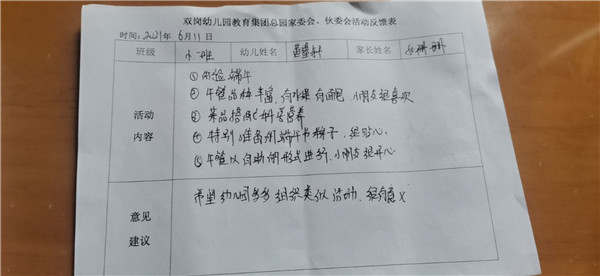 双岗幼儿园教育集团总园家委会、伙委会活动反馈表
时间：2021年6月11日
班级 小一班 幼儿姓名 家长姓名
活动内容
① 体验端午
② 午餐品种丰富，有水果有面包，小朋友很喜欢
③ 菜品搭配科学营养
④ 特别准备的端午节粽子，很贴心
⑤ 午餐以自助的形式进行，小朋友很开心
意见建议
希望幼儿园多多组织类似活动，很有意义